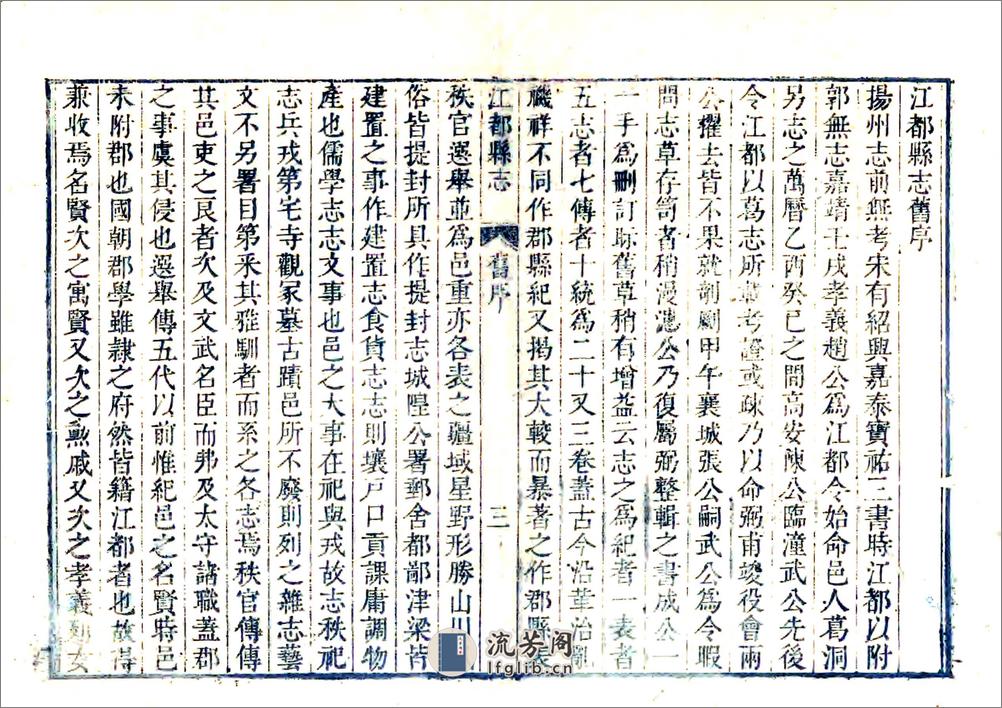 江都縣志舊序
揚州志前無考宋有紹興嘉泰寶祐三書時江都以附
郭無志嘉靖壬戌孝義趙公爲江都令始命邑人葛洞
另志之萬曆乙酉癸巳之間高安陳公臨潼武公先後
令江都以葛志所考證或疎乃以命弼甫竣役會兩
公擢去皆不果就剞劂甲午襄城張公嗣武公爲令暇
問志草存笥者稍漫漶公乃復屬弼整輯之書成公一
一手爲刪訂眎舊草稍有增益云志之爲紀者一表者
五志者七傳者十統爲二十又三卷蓋古今沿革治亂
禨祥不同作郡縣紀又揭其大較而暴著之作郡縣表
江都縣志 舊序 三
秩官選舉並爲邑重亦各表之疆域星野形勝山川
俗皆提封所具作提封志城隍公署郵舍都鄙津梁皆
建置之事作建置志食貨志志則壤戸口貢課庸調物
產也儒學志志文事也邑之大事在祀與戎故志秩祀
志兵戎第宅寺觀冢墓古蹟邑所不廢則列之雜志藝
文不另署目第采其雅馴者而系之各志焉秩官傳傳
其邑吏之良者次及文武名臣而弗及太守諸職蓋郡
之事虞其侵也選舉傳五代以前惟紀邑之名賢時邑
未附郡也國朝郡學雖隷之府然皆籍江都者也故得
兼收焉名賢次之寓賢又次之勲戚又次之孝義列女
流芳阁
lfglib.cn